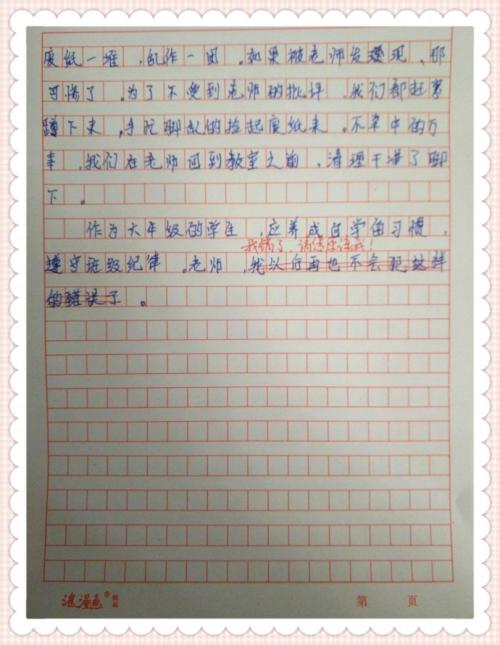 废纸一堆,乱作一团。如果被老师发现,那
可惨了。为了不受到老师的批评,我们都赶紧
蹲下来,手忙脚乱的捡起废纸来。不幸中的万
幸,我们在老师回到教室之前,清理干净了脚
下。
作为六年级的学生,应养成自学的习惯,
我错了,请您原谅我!
遵守班级纪律。老师,我以后再也不会犯这样
的错误了。
第 页